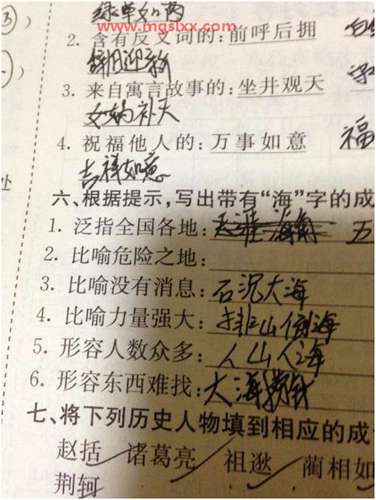 绿草如茵
www.mgslxx.com
2. 含有反义词的: 前呼后拥
辞旧迎新
3. 来自寓言故事的: 坐井观天
女娲补天
4. 祝福他人的: 万事如意 福
吉祥如意
处
六、根据提示,写出带有“海”字的成
1. 泛指全国各地: 天涯海角 五
2. 比喻危险之地:
3. 比喻没有消息: 石沉大海
4. 比喻力量强大: 排山倒海
5. 形容人数众多: 人山人海
6. 形容东西难找: 大海捞针
七、将下列历史人物填到相应的成
赵括 诸葛亮 祖逖 蔺相如
荆轲